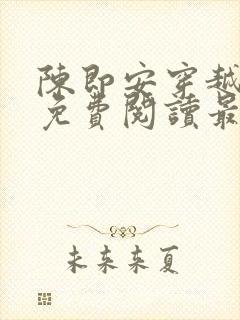 陳即安穿越
免費閱讀最
未来来夏